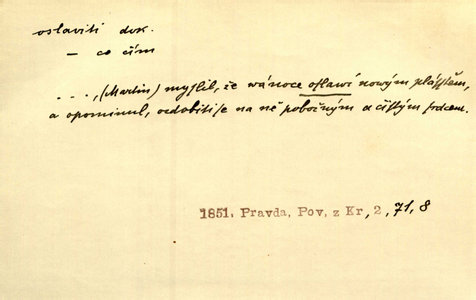 oslaviti dok.
— co čím
...,(Martin) myslil, že wánoce oslawí nowým pláštěm,
a opominul, ozdobiti se na ně pobožným a čistým srdcem.
1851. Pravda, Pov. z Kr, 2, 71, 8